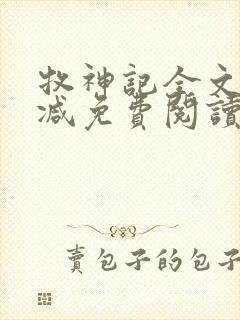 牧神記全文
減免費閱讀
賣包子的包子